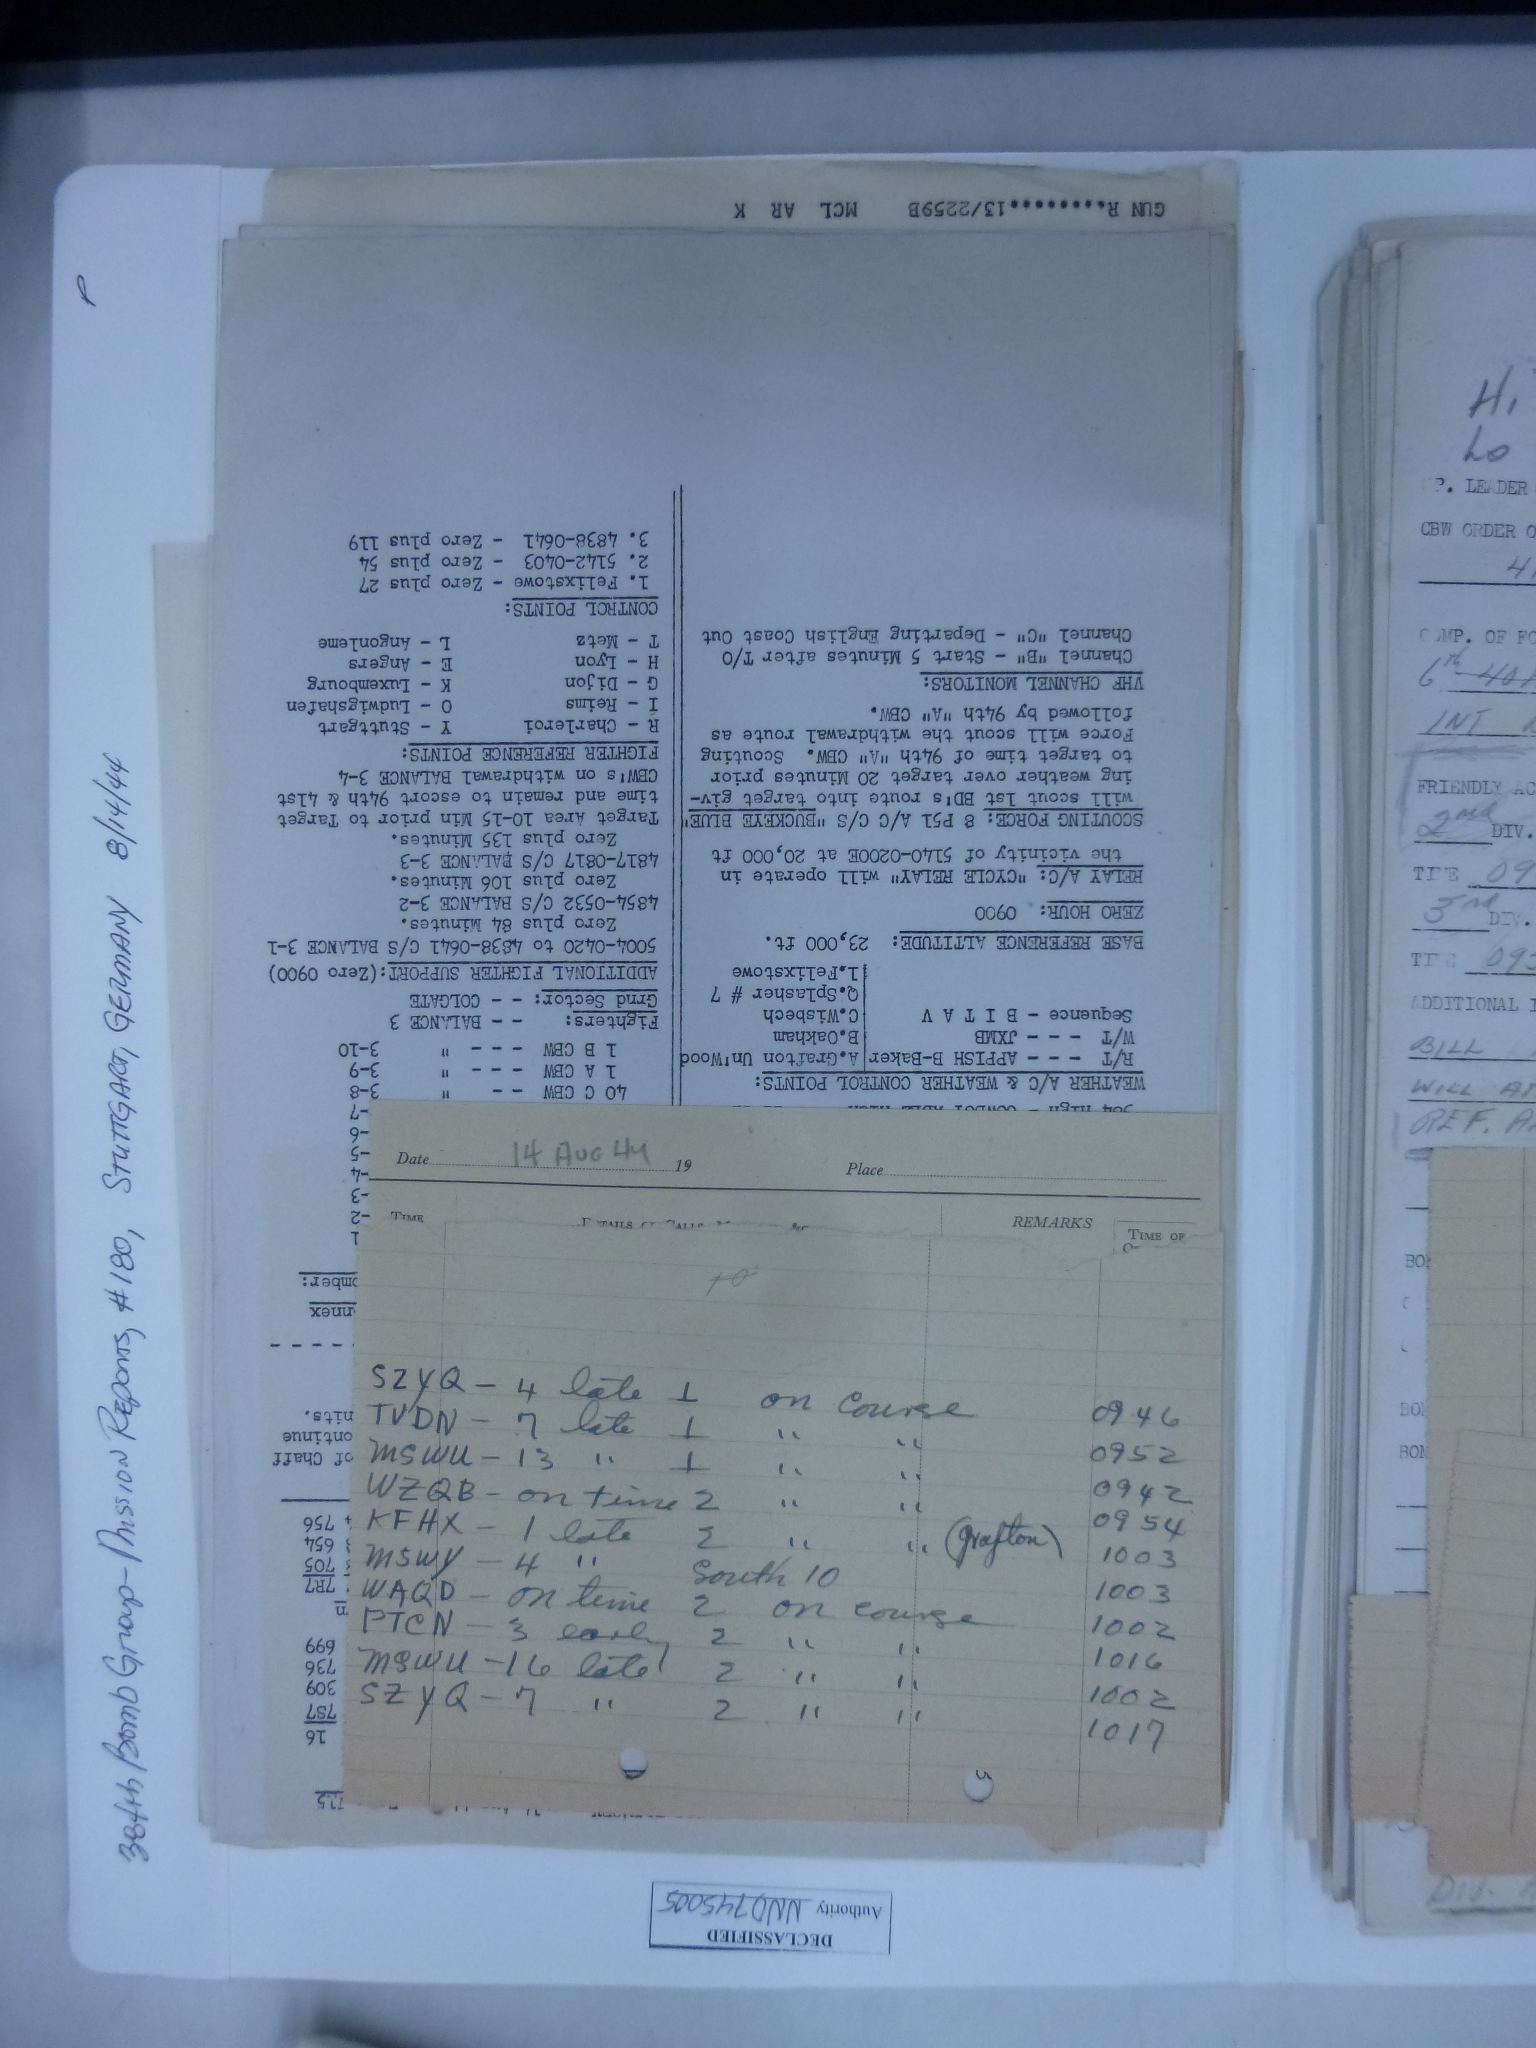 384th Bomb Group - Mission Reports, #180, Stuttgart, Germany 8/14/44
P
GUN R.........13/2259B MCL AR K
WEATHER A/C & WEATHER CONTROL POINTS:
R/T - - - APPISH B-Baker A.Grafton Un'Wood
W/T - - - JXMB B.Oakham
Sequence - B I T A V C.Wisbech
Q.Splasher # 7
1.Felixstowe
BASE REFERENCE ALTITUDE: 23,000 ft.
ZERO HOUR: 0900
RELAY A/C: "CYCLE RELAY" will operate in
the vicinity of 5140-0200E at 20,000 ft
SCOUTING FORCE: 8 P51 A/C C/S "BUCKEYE BLUE"
will scout 1st BD's route into target giv-
ing weather over target 20 Minutes prior
to target time of 94th "A" CBW. Scouting
Force will scout the withdrawal route as
followed by 94th "A" CBW.
VHF CHANNEL MONITORS:
Channel "B" - Start 5 Minutes after T/O
Channel "C" - Departing English Coast Out
1
-2
-3
-4
-5
-6
-7
40 C CBW - - - " 3-8
1 A CBW - - - " 3-9
1 B CBW - - - " 3-10
Fighters: - - BALANCE 3
Grnd Sector: - - COLGATE
ADDITIONAL FIGHTER SUPPORT:(Zero 0900)
5004-0420 to 4838-0641 C/S BALANCE 3-1
Zero plus 84 Minutes.
4854-0532 C/S BALANCE 3-2
Zero plus 106 Minutes.
4817-0817 C/S BALANCE 3-3
Zero plus 135 Minutes.
Target Area 10-15 Min prior to Target
time and remain to escort 94th & 41st
CBW's on withdrawal BALANCE 3-4
FIGHTER REFERENCE POINTS:
R - Charleroi Y - Stuttgart
I - Reims O - Ludwigshafen
G - Dijon K - Luxembourg
H - Lyon E - Angers
T - Metz L - Angonleme
CONTROL POINTS:
1. Felixstowe - Zero plus 27
2. 5142-0403 - Zero plus 54
3. 4838-0641 - Zero plus 119
16
7S7
309
736
699
7R7
705
654
756
of Chaff
ontinue
nits.
nnex
mber:
Date 14 AUG 44 19 Place
TIME REMARKS TIME OF
SZYQ - 4 late 1 on course 0946
TVDN - 7 late 1 " " 0952
MSWU - 13 " 1 " " 0942
WZQB - on time 2 " " 0954
KFHX - 1 late 2 " " (Grafton) 1003
MSWY - 4 " South 10 1003
WAQD - on time 2 on course 1002
PTCN - 3 early 2 " " 1016
MSWU - 16 late 2 " " 1002
SZYQ - 7 " 2 " " 1017
DECLASSIFIED
Authority NND745005
Hi
Lo
P. LEADER
CBW ORDER O
COMP. OF FO
6th 40
INT
FRIENDLY AC
2nd DIV.
TIME 09
3rd DIV.
TIME 09
ADDITIONAL I
BILL
WILL
REF.
BOM
DIV.